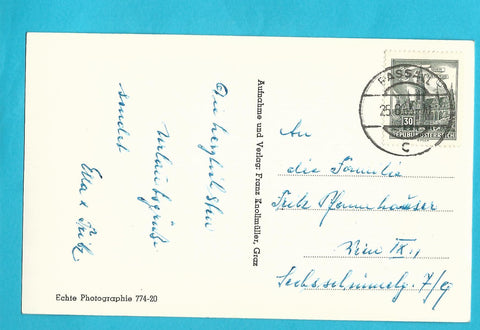 Die herzlichsten
Urlaubsgrüße
sendet
Ella & Fritz
Echte Photographie 774-20
Aufnahme und Verlag: Franz Knollmüller, Graz
PASSAIL
25.6.
C
30
REPUBLIK ÖSTERREICH
An
die Familie
Fritz Pfannhauser
Wien IX.,
7/9